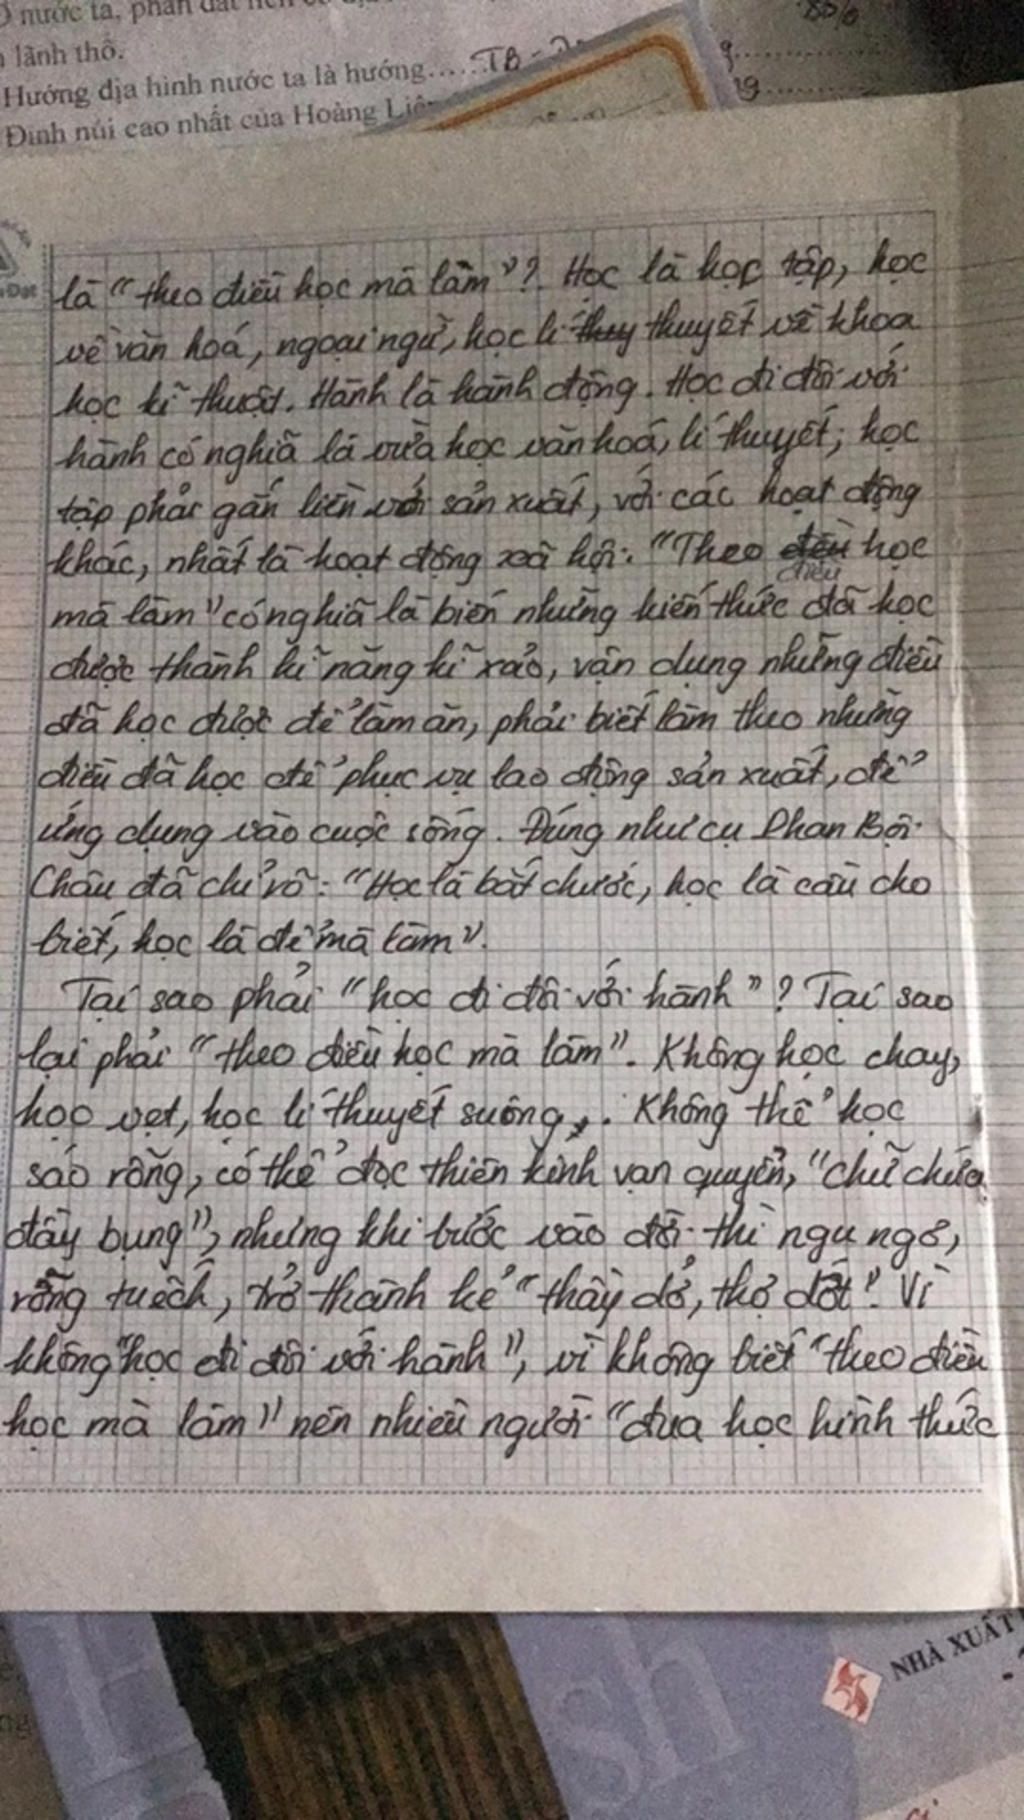 nước ta, phần đất
lãnh thổ.
Hướng địa hình nước ta là hướng.....TB -
Đỉnh núi cao nhất của Hoàng Liê
là "theo điều học mà làm"? Học là học tập, học
về văn hoá, ngoại ngữ, học lí thuy thuyết về khoa
học kĩ thuật. Hành là hành động. Học đi đôi với
hành có nghĩa là vừa học văn hoá, lí thuyết, học
tập phải gắn liền với sản xuất, với các hoạt động
khác, nhất là hoạt động xã hội. "Theo điều học
mà làm" có nghĩa là biến những kiến thức đã học
được thành kĩ năng kĩ xảo, vận dụng những điều
đã học được để làm ăn, phải biết làm theo những
điều đã học để phục vụ lao động sản xuất, để
ứng dụng vào cuộc sống. Đúng như cụ Phan Bội
Châu đã chỉ rõ: "Học là bắt chước, học là cầu cho
biết, học là để mà làm".
Tại sao phải "học đi đôi với hành"? Tại sao
lại phải "theo điều học mà làm". Không học chay,
học vẹt, học lí thuyết suông,. Không thể học
sáo rỗng, có thể đọc thiên kinh vạn quyển, "chữ chứa
đầy bụng", nhưng khi bước vào đời thì ngu ngơ,
rỗng tuếch, trở thành kẻ "thầy dở, thợ dốt". Vì
không "học đi đôi với hành", vì không biết "theo điều
học mà làm" nên nhiều người "đua học hình thức
NHÀ XUẤT
sh